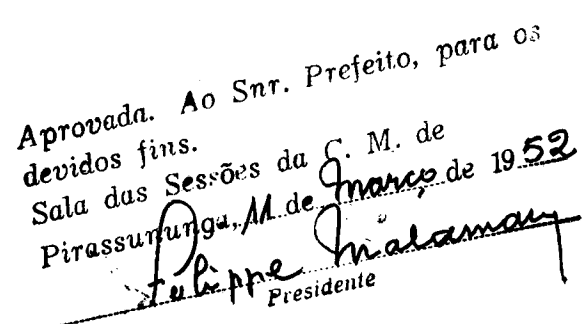 Aprovada. Ao Snr. Prefeito, para os
devidos fins.
Sala das Sessões da C. M. de
Pirassununga, 11 de Março de 1952
Felippe Malaman
Presidente